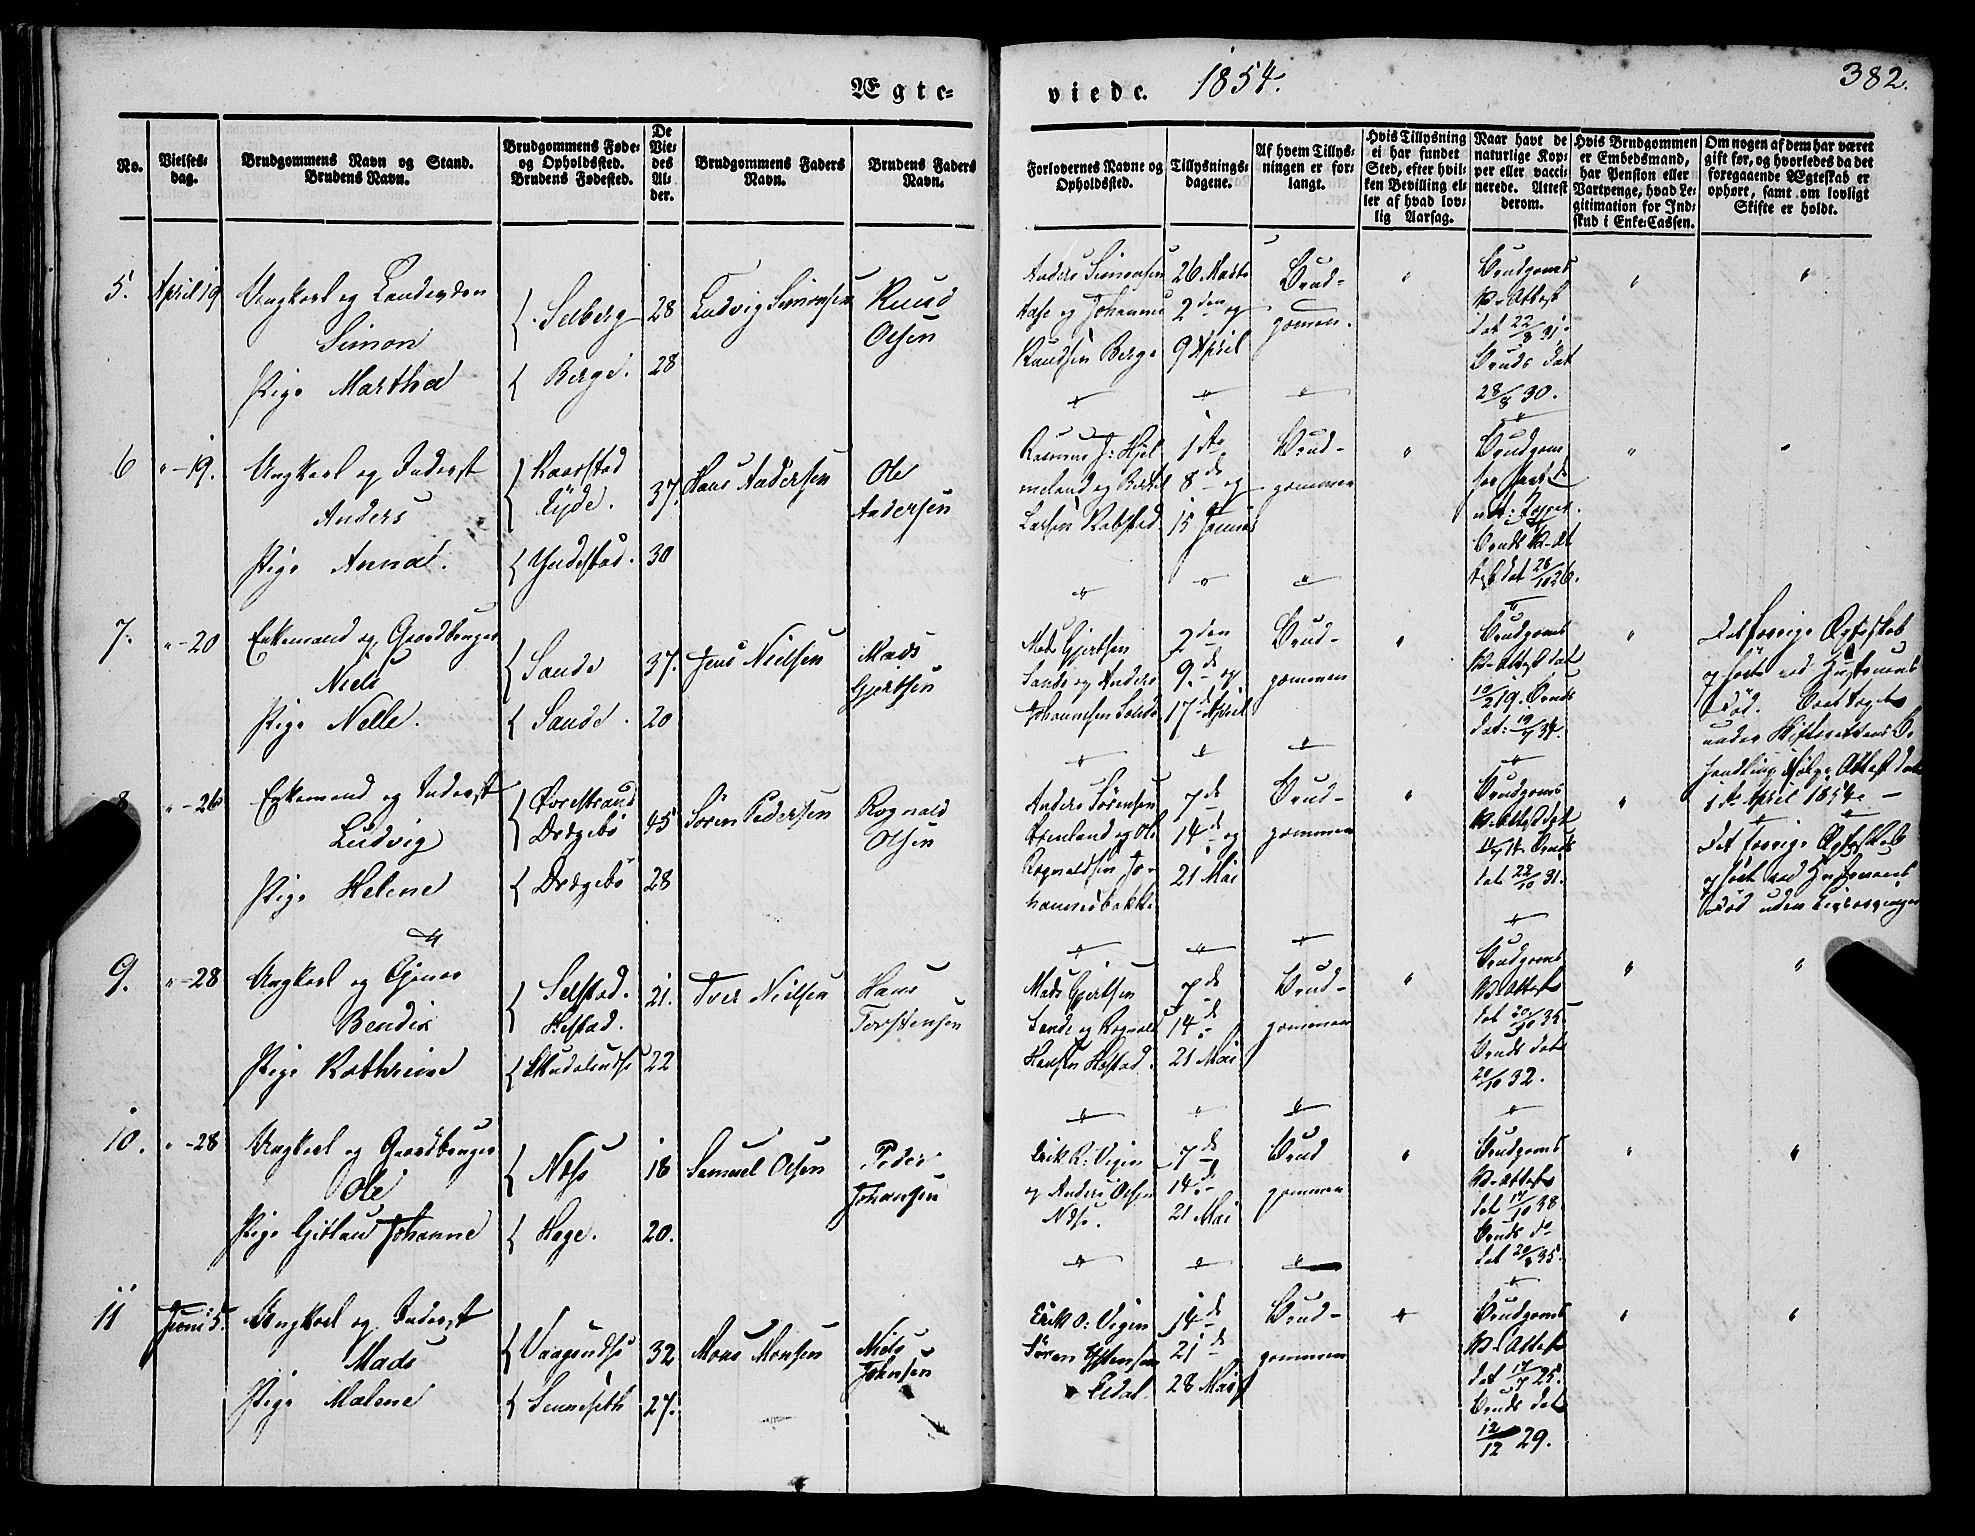 Ægte-
viede. 1854.
382.
No.
Vielses-
dag.
Brudgommens Navn og Stand.
Brudens Navn.
Brudgommens Føde-
og Opholdssted.
Brudens Fødested.
De
Vie-
des
Al-
der.
Brudgommens Faders
Navn.
Brudens Faders
Navn.
Forlovernes Navne og
Opholdssted.
Tillysnings-
dagene.
Af hvem Tillys-
ningen er for-
langt.
Hvis Tillysning
ei har fundet
Sted, efter hvil-
ken Bevilling el-
ler af hvad lov-
lig Aarsag.
Naar havt de
naturlige Kop-
per eller vacci-
nerede. Attest
derom.
Hvis Brudgommen
er Embedsmand,
har Pension eller
Vartpenge, hvad Le-
gitimation for Ind-
skud i Enke-Cassen.
Om nogen af dem har været
gift før, og hvorledes da det
foregaaende Ægteskab er
ophørt, samt om lovligt
Skifte er holdt.
5. April 19 Ungkarl og
Simon
Pige Martha
Selberg
Berge.
28
28
Ludvig Simonsen
Knud
Olsen
Anders Simonsen
og Johannes
Knudsen Berge
26 Marts
2den og
9 April
Brud-
gomen.
Brudgoms
V-Attest
dat 22/8 31.
Bruds dat
28/8 30.
6 " - 19. Ungkarl og Inderst
Anders
Pige Anna.
Kaarstad
Yndestad.
37.
30
Hans Andersen
Ole
Andersen
Rasmus J: Hjel
meland og
Larsen
1ste
8de og
15 Januar
Brud-
gommen
Brudgom
Bruds V-At
test dat 28/10 26.
7. " - 20 Enkemand og Gaardbruger
Niels
Pige Nelle.
Sande
Sande.
37.
20
Jens Nielsen
Mads
Gjertsen
Mads Gjertsen
Sande og Anders
Johannesen
2den
9de og
17de April
Brud-
gommen
Brudgoms
V-Attest dat
10/2 19. Bruds
dat: 19/9 34.
Det forrige Ægteskab
ophørt ved Hustruens
Død. Boet taget
under Skifterettens Be
handling ifølge Attest dat
1ste April 1854 -
8 " - 26 Enkemand og Inderst
Ludvig
Pige Helene
Øvrestrand
Drægebø
Drægebø
45
28
Søren Pedersen
Rognald
Olsen
Anders Sørensen
og Ole
Rognaldsen Jo-
hannesbakke
7de
14de og
21 Mai
Brud-
gommen
Brudgoms
V-Attest dat
Bruds
dat 22/10 31.
Det forrige Ægteskab
ophørt ved Hustruens
Død uden Livsarvinger
9. " - 28 Ungkarl og
Bendix
Pige Kathrine
Selstad.
Hestad.
21.
22
Iver Nielsen
Hans
Torstensen
Mads Gjertsen
Sande og Rognald
Hansen Hestad.
7de
14de
21 Mai
Brud-
gommen
Brudgoms
V-Attest
dat 20/10 35.
Bruds dat
20/10 32.
10. " - 28 Ungkarl og Gaardbruger
Ole
Pige Gjølau Johanne
Næss
Hage.
18
20.
Samuel Olsen
Peder
Johansen
Erik O: Vigen
og Anders Olsen
Næss.
7de
14de
21 Mai
Brud
gommen
Brudgoms
V-Attest
dat 17/10 38
Bruds do
dat 20/8 35.
11 Juni 5. Ungkarl og Inderst
Mads
Pige Malene
Sennesæth
32
27.
Mons Monsen
Niels
Johnsen
Erik O: Vigen
Søren
14de
21de
28 Mai
Brud-
gommen
Brudgoms
V-Attest
dat 17/7 25.
Bruds dat
12/12 29.